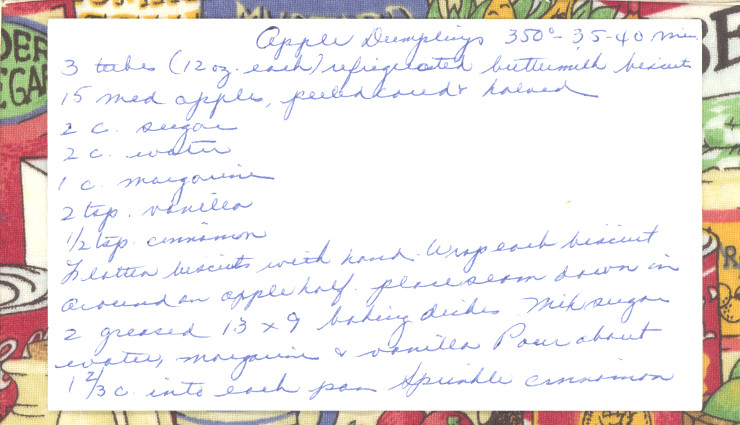 Apple Dumplings 350° - 35-40 min.
3 tubes (12 oz. each) refrigerated buttermilk biscuits
15 med apples, peeled cored & halved
2 c. sugar
2 c. water
1 c. margarine
2 tsp. vanilla
1/2 tsp. cinnamon
Flatten biscuits with hand. Wrap each biscuit
around an apple half. place seam down in
2 greased 13 x 9 baking dishes. Mix sugar
water, margarine & vanilla Pour about
1 2/3 c. into each pan Sprinkle cinnamon